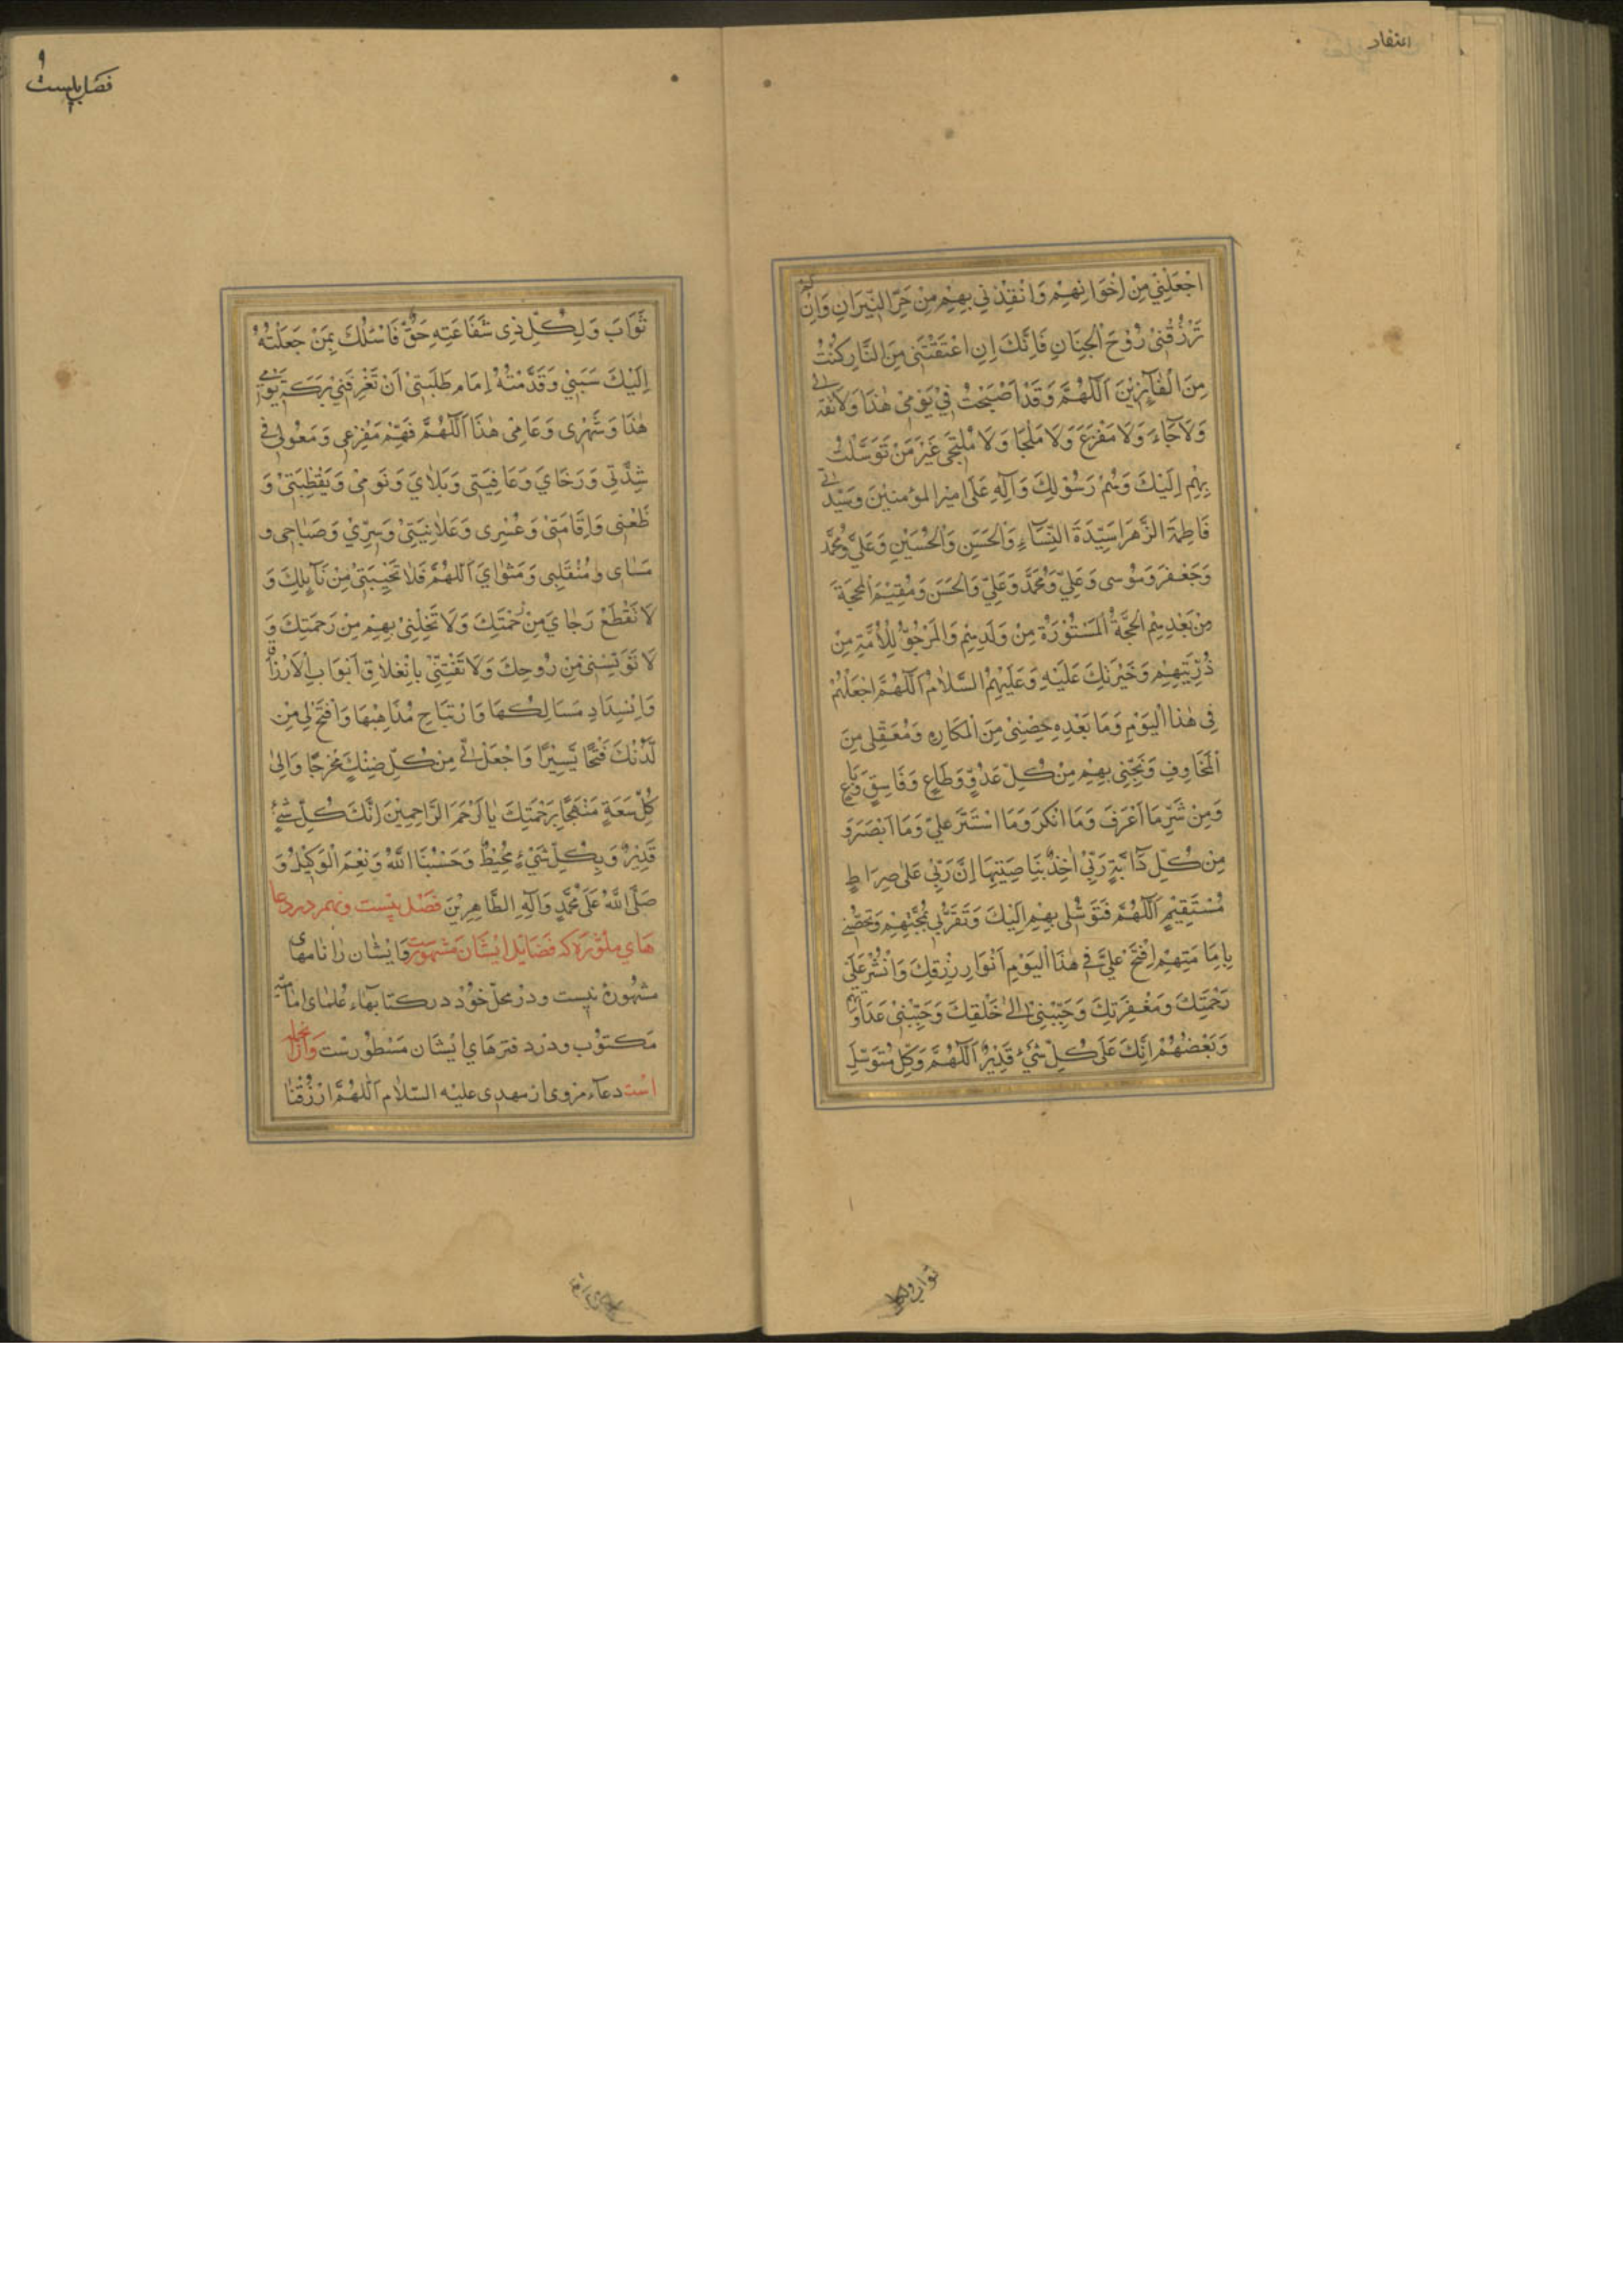 اعتقاد
اجْعَلْنِي مِنْ اِخْوَانِهِمْ وَانْقِذْنِي بِهِمْ مِنْ حَرِّ النِّيرَانِ وَاِنْ
تَرْزُقْنِي رُوْحَ الْجِنَانِ فَاِنَّكَ اِنِ اعْتَقْتَنِي مِنَ النَّارِ كُنْتُ
مِنَ الْفَآئِزِيْنَ اَللّٰهُمَّ وَقَدْ اَصْبَحْتُ فِيْ يَوْمِيْ هٰذَا وَلَا ثِقَةَ لِي
وَلَا رَجَاءَ وَلَا مَفْزَعَ وَلَا مَلْجَا وَلَا مُلْتَجٰى غَيْرَ مَنْ تَوَسَّلْتُ
بِهِمْ اِلَيْكَ وَهُمْ رَسُوْلِكَ وَآلِهِ عَلَى امير المؤمنيْنَ وَسَيِّدَتِي
فَاطِمَةَ الزَّهْرَا سَيِّدَةَ النِّسَآءِ وَالْحَسَنِ وَالْحُسَيْنِ وَعَلِيٍّ وَمُحَمَّدٍ
وَجَعْفَرَ وَمُوْسى وَعَلِيٍّ وَمُحَمَّدٍ وَعَلِيٍّ وَالْحَسَنَ وَمُقِيْمَ الْمَحَجَّةَ
مِنْ بَعْدِهِمُ الْحُجَّةُ الْمَسْتُوْرَةُ مِنْ وَلَدِهِمْ وَالْمَرْجُوُّ لِلْاُمَّةِ مِنْ
ذُرِّيَّتِهِمْ وَخَيْرَتِكَ عَلَيْهِ وَعَلَيْهِمُ السَّلَامُ اَللّٰهُمَّ اجْعَلْهُمْ
فِي هٰذَا الْيَوْمِ وَمَا بَعْدِهِ حِصْنِيْ مِنَ الْمَكَارِهِ وَمَعْقِلِي مِنَ
الْمَخَاوِفِ وَنَجِّنِي بِهِمْ مِنْ كُلِّ عَدُوٍّ وَطَاغٍ وَفَاسِقٍ وَبَاغٍ
وَمِنْ شَرِّ مَا اَعْرَفَ وَمَا اَنْكَرَ وَمَا اسْتَتَرَ عَلَيَّ وَمَا اَبْصَرَ وَ
مِنْ كُلِّ دَآبَّةٍ رَبِّيْ اٰخِذٌ بِنَاصِيَتِهَا اِنَّ رَبِّيْ عَلٰى صِرَاطٍ
مُسْتَقِيْمٍ اَللّٰهُمَّ فَتَوَسُّلِي بِهِمْ اِلَيْكَ وَتَقَرُّبِي بِمَحَبَّتِهِمْ وَتَحَصُّنِي
بِاِمَامَتِهِمْ اِفْتَحْ عَلَيَّ فِي هٰذَا الْيَوْمِ اَنْوَارَ رِزْقِكَ وَانْشُرْ عَلَيَّ
رَحْمَتِكَ وَمَغْفِرَتِكَ وَحَبِّبْنِيْ اِلٰى خَلْقِكَ وَجَنِّبْنِيْ عَدَاوَتَهُمْ
وَبَغْضَهُمْ اِنَّكَ عَلٰى كُلِّ شَيْءٍ قَدِيْرٌ اَللّٰهُمَّ وَكُلِّ مُتَوَسِّلٍ
ثواب ولكل
فصل بيست
ثَوَابَ وَلِكُلِّ ذِي شَفَاعَتِهِ حَقٌّ فَاَسْئَلُكَ بِمَنْ جَعَلْتُهُ
اِلَيْكَ سَبَبِيْ وَقَدَّمْتُهُ اِمَامَ طَلَبَتِيْ اَنْ تَعْرِفَنِيْ بَرَكَةَ يَوْمِي
هٰذَا وَشَهْرِي وَعَامِيْ هٰذَا اَللّٰهُمَّ فَهُمْ مَفْزَعِي وَمَعُولِي فِي
شِدَّتِي وَرَخَايَ وَعَافِيَتِي وَبَلَايَ وَنَومِيْ وَيَقْظَتِيْ وَ
ظَعْنِي وَاِقَامَتِيْ وَعُسْرِي وَعَلَانِيَتِيْ وَسِرِّيْ وَصَبَاحِي و
مَسَاى و مُنْقَلَبِي وَمَثْوَايَ اَللّٰهُمَّ فَلَا تُخَيِّبْنِيْ مِنْ نَآيِلِكَ وَ
لَا تَقْطَعْ رَجَايَ مِنْ رَحْمَتِكَ وَلَا تُخْلِنِيْ بِهِمْ مِنْ رَحْمَتِكَ وَ
لَا تُؤَيِّسْنِيْ مِنْ رُوْحِكَ وَلَا تَفْتِنِّيْ بِانْغِلَاقِ اَبْوَابِ الْاَرْزَاقِ
وَانْسِدَادِ مَسَالِكِهَا وَارْتِتَاحِ مَذَاهِبِهَا وَافْتَحْ لِي مِنْ
لَّدُنْكَ فَتْحًا يَسِيْرًا وَاجْعَلْ لِّيْ مِنْ كُلِّ ضِنْكٍ مَخْرَجًا وَاِلٰى
كُلِّ سَعَةٍ مَنْهَجًا بِرَحْمَتِكَ يَا اَرْحَمَ الرَّاحِمِيْنَ اِنَّكَ كُلِّ شَيْءٍ
قَدِيْرٌ وَبِكُلِّ شَيْءٍ مُحِيْطٌ وَحَسْبُنَا اللّٰهُ وَنِعْمَ الْوَكِيْلُ وَ
صَلَّى اللّٰهُ عَلٰى مُحَمَّدٍ وَآلِهِ الطَّاهِرِيْنَ فَصْل بيْست ونهم در دعا
هَاي مَاثُورَه كه فَضَايْل ايْشَان مَشهُورست وَايْشَان رَا نامهاى
مشهُورهْ نيست و درْ محلّ خوْد در كتابهاء عُلمَاى اماميّه
مَكتوُب و درْ دفترهَاي ايْشَان مَسْطوُرسْت وَازانجمله
اسْت دعآء مروى از مهدى عليْه السّلام اَللّٰهُمَّ ارْزُقْنَا